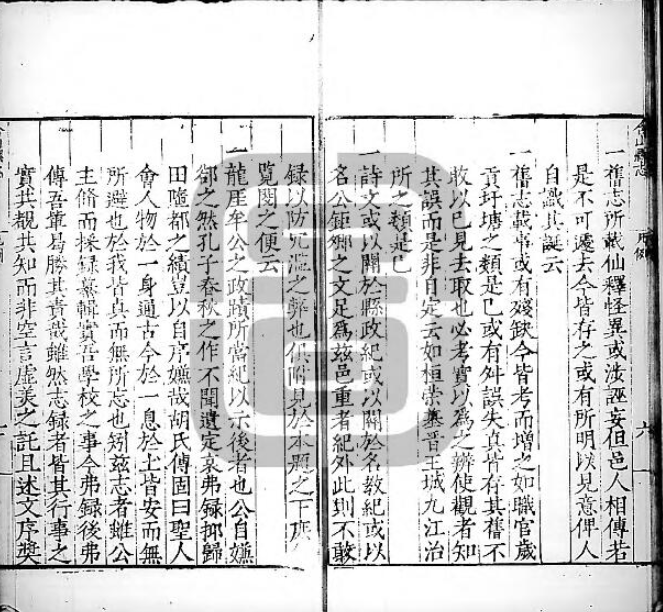 一舊志所載仙釋怪異或涉誣妄但邑人相傳若
是不可遽去今皆存之或有所明以見意俾人
自識其誕云
一舊志載事或有殘缺今皆考而增之如職官歲
貢圩塘之類是已或有舛誤失真皆存其舊不
敢以己見去取也必考實以為之辨使觀者知
其誤而是非自定云如桓崇墓晉王城九江治
所之類是已
一詩文或以關於縣政紀或以關於名教紀或以
名公鉅卿之文足為茲邑重者紀外此則不敢
錄以防冗濫之弊也俱附見於本題之下庶
覽閱之便云
一龍崖牟公之政蹟所當紀以示後者也公自嫌
郤之然孔子春秋之作不聞遺定哀弗錄抑歸
田隳都之績豈以自序嫌哉胡氏傳固曰聖人
會人物於一身通古今於一息於土皆安而無
所避也於我皆真而無所志也矧茲志者雖公
主脩而採錄纂輯實吾學校之事今弗錄後弗
傳吾輩曷勝其責哉雖然志錄者皆其行事之
實共覩共知而非空言虛美之託且述文序獎